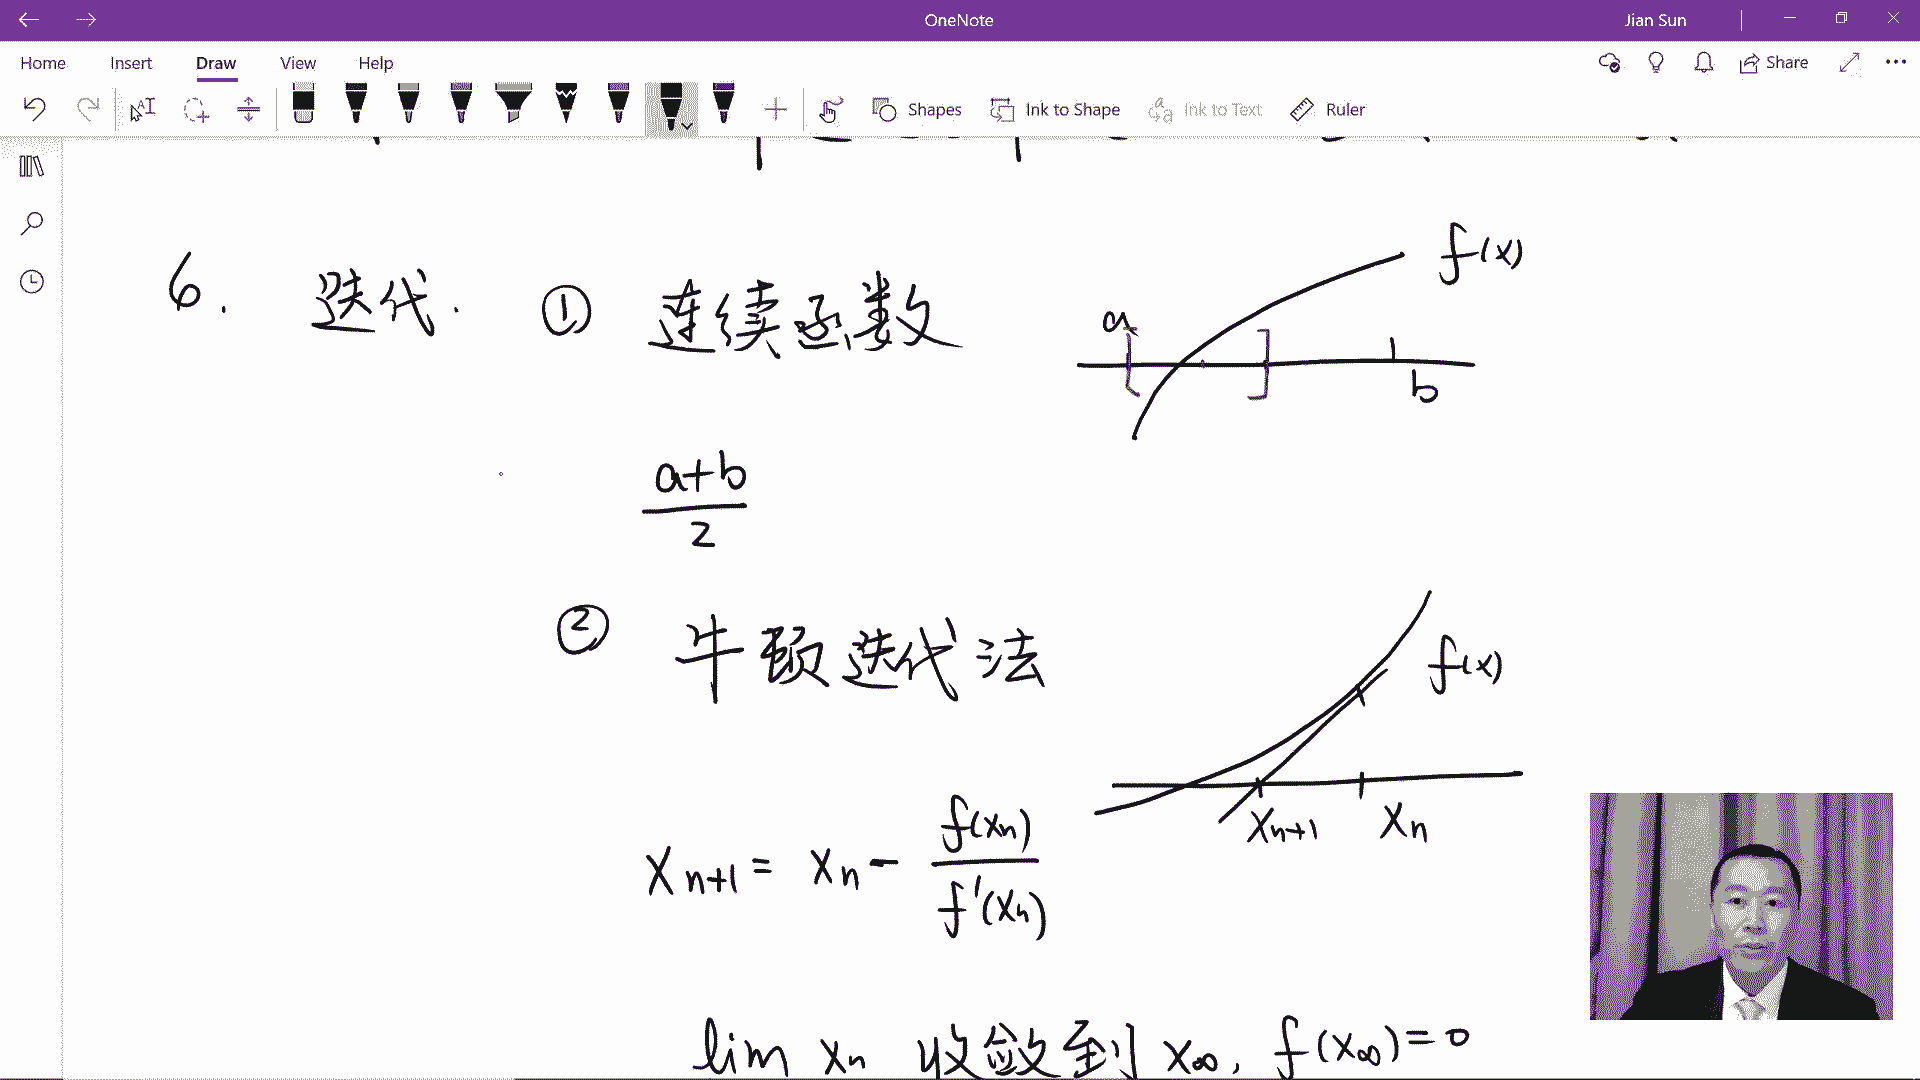 OneNote
Jian Sun
Home Insert Draw View Help
Share
Shapes Ink to Shape Ink to Text Ruler
6. 迭代. ① 连续函数
f(x)
a
b
a+b
2
② 牛顿迭代法
f(x)
Xn+1 Xn
Xn+1 = Xn - f(Xn)
f'(Xn)
lim Xn 收敛到 X∞, f(X∞)=0